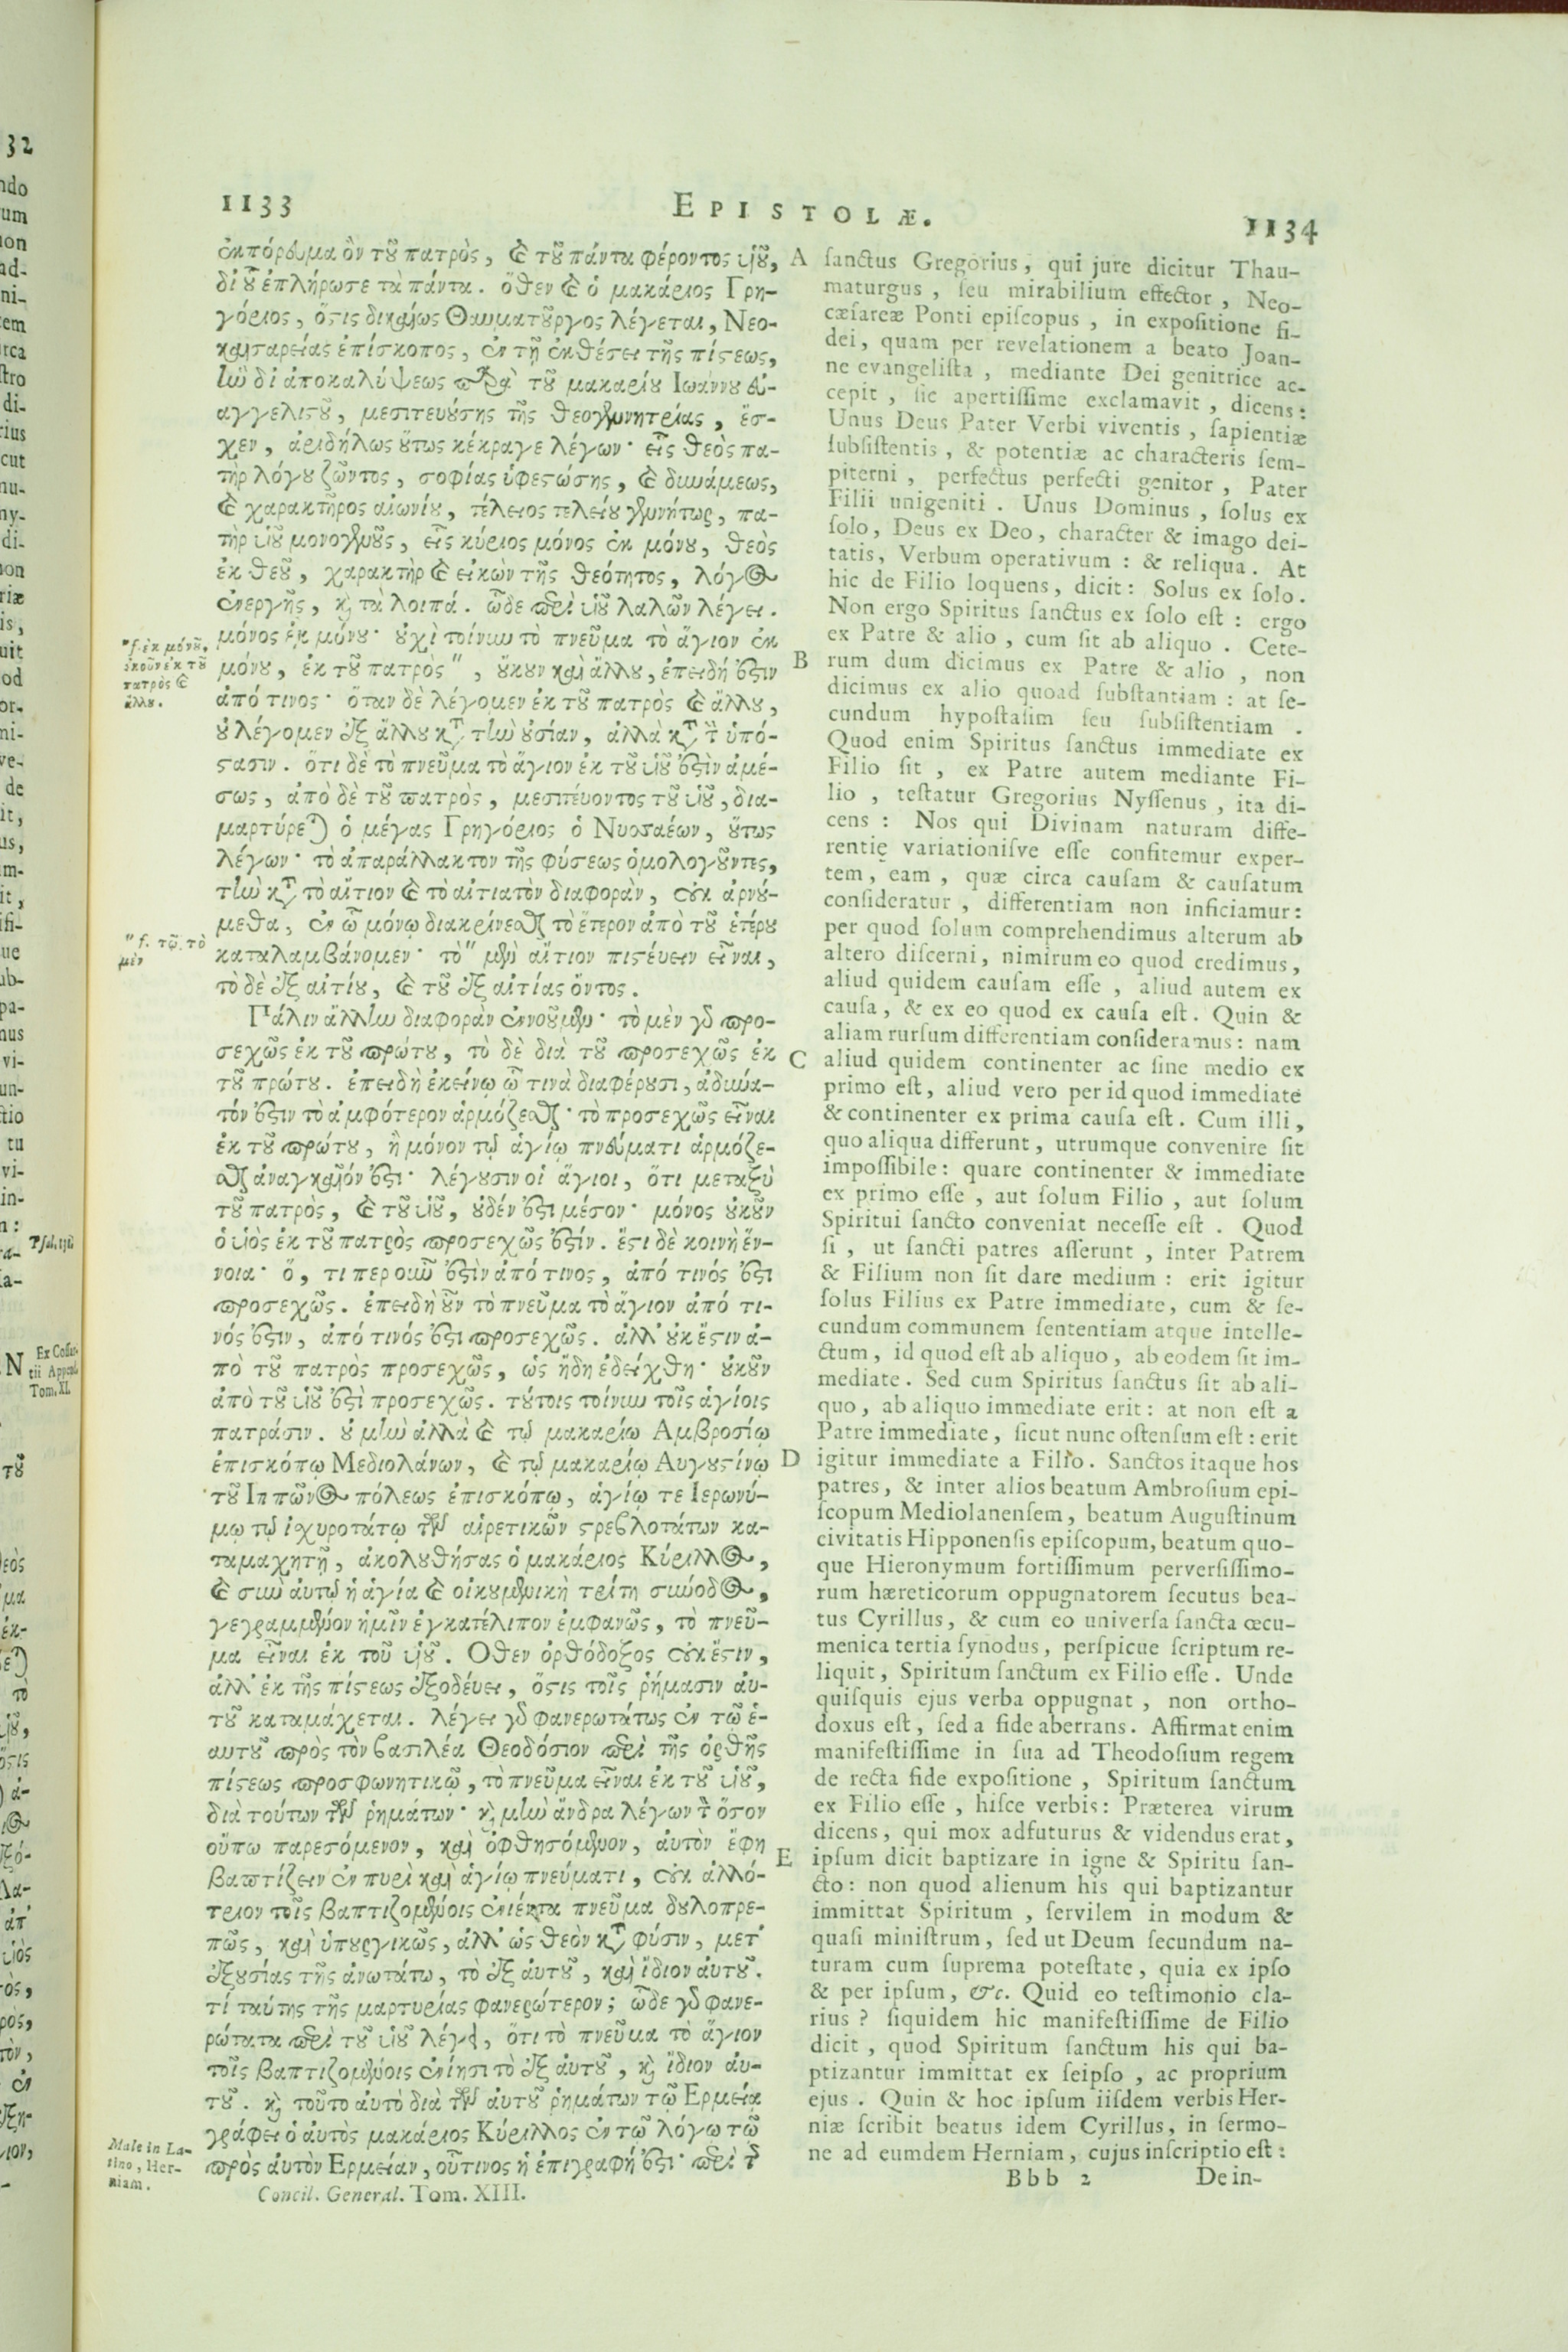 1133
EPISTOLÆ.
1134
ἐκπόρευμα ὂν τοῦ πατρὸς, καὶ τοῦ πάντα φέροντος υἱοῦ,
δι' οὗ ἐπλήρωσε τὰ πάντα. ὅθεν καὶ ὁ μακάριος Γρη-
γόριος, ὅστις δικαίως Θαυματοῦργος λέγεται, Νεο-
καισαρείας ἐπίσκοπος, ἐν τῇ ἐκθέσει τῆς πίστεως,
ἣν δι' ἀποκαλύψεως παρὰ τοῦ μακαρίου Ιωάννου εὐ-
αγγελιστοῦ, μεσιτευούσης τῆς θεογεννητρίας, ἔσ-
χεν, ἀριδήλως οὕτως κέκραγε λέγων· εἷς θεὸς πα-
τὴρ λόγου ζῶντος, σοφίας ὑφεστώσης, καὶ δυνάμεως,
καὶ χαρακτῆρος αἰωνίου, τέλειος τελείου γεννήτωρ, πα-
τὴρ υἱοῦ μονογενοῦς, εἷς κύριος μόνος ἐκ μόνου, θεὸς
ἐκ θεοῦ, χαρακτὴρ καὶ εἰκὼν τῆς θεότητος, λόγος
ἐνεργὴς, καὶ τὰ λοιπά. ὧδε περὶ υἱοῦ λαλῶν λέγει.
μόνος ἐκ μόνου· οὐχὶ τοίνυν τὸ πνεῦμα τὸ ἅγιον ἐκ
μόνου, ἐκ τοῦ πατρὸς", οὔκουν καὶ ἄλλου, ἐπειδή ἐστιν
ἀπό τινος· ὅταν δὲ λέγομεν ἐκ τοῦ πατρὸς καὶ ἄλλου,
οὐ λέγομεν ἐξ ἄλλου κατὰ τὴν οὐσίαν, ἀλλὰ κατὰ τὴν ὑπό-
στασιν. ὅτι δὲ τὸ πνεῦμα τὸ ἅγιον ἐκ τοῦ υἱοῦ ἐστὶν ἀμέ-
σως, ἀπὸ δὲ τοῦ πατρὸς, μεσιτεύοντος τοῦ υἱοῦ, δια-
μαρτύρεται ὁ μέγας Γρηγόριος ὁ Νυσσαέων, οὕτως
λέγων· τὸ ἀπαράλλακτον τῆς φύσεως ὁμολογοῦντες,
τὴν κατὰ τὸ αἴτιον καὶ τὸ αἰτιατὸν διαφορὰν, οὐκ ἀρνού-
μεθα, ἐν ᾧ μόνῳ διακρίνεσθαι τὸ ἕτερον ἀπὸ τοῦ ἑτέρου
καταλαμβάνομεν· τὸ" μὲν αἴτιον πιστεύειν εἶναι,
τὸ δὲ ἐξ αἰτίου, καὶ τοῦ ἐξ αἰτίας ὄντος.
Πάλιν ἄλλην διαφορὰν ἐννοοῦμεν· τὸ μὲν γὰρ προ-
σεχῶς ἐκ τοῦ πρώτου, τὸ δὲ διὰ τοῦ προσεχῶς ἐκ
τοῦ πρώτου. ἐπειδὴ ἐκείνῳ ᾧ τινὰ διαφέρουσι, ἀδύνα-
τόν ἐστιν τὸ ἀμφότερον ἁρμόζεσθαι· τὸ προσεχῶς εἶναι
ἐκ τοῦ πρώτου, ἢ μόνον τῷ ἁγίῳ πνεύματι ἁρμόζε-
σθαι ἀναγκαῖόν ἐστι· λέγουσιν οἱ ἅγιοι, ὅτι μεταξὺ
τοῦ πατρὸς, καὶ τοῦ υἱοῦ, οὐδέν ἐστι μέσον· μόνος οὐκοῦν
ὁ υἱὸς ἐκ τοῦ πατρὸς προσεχῶς ἐστίν. ἔστι δὲ κοινὴ ἔν-
νοια· ὅ, τι περ οὖν ἐστὶν ἀπό τινος, ἀπό τινός ἐστι
προσεχῶς. ἐπειδὴ οὖν τὸ πνεῦμα τὸ ἅγιον ἀπό τι-
νός ἐστιν, ἀπό τινός ἐστι προσεχῶς. ἀλλ' οὐκ ἔστιν ἀ-
πὸ τοῦ πατρὸς προσεχῶς, ὡς ἤδη ἐδείχθη· οὐκοῦν
ἀπὸ τοῦ υἱοῦ ἐστὶ προσεχῶς. τούτοις τοίνυν τοῖς ἁγίοις
πατράσιν. οὐ μὴν ἀλλὰ καὶ τῷ μακαρίῳ Αμβροσίῳ
ἐπισκόπῳ Μεδιολάνων, καὶ τῷ μακαρίῳ Αυγουστίνῳ
τοῦ Ιππῶνος πόλεως ἐπισκόπῳ, ἁγίῳ τε Ιερωνύ-
μῳ τῷ ἰχυροτάτῳ τῶν αἱρετικῶν στρεβλοτάτων κα-
ταμαχητῇ, ἀκολουθήσας ὁ μακάριος Κύριλλος,
καὶ σὺν αὐτῷ ἡ ἁγία καὶ οἰκουμενικὴ τρίτη σύνοδος,
γεγραμμένον ἡμῖν ἐγκατέλιπον ἐμφανῶς, τὸ πνεῦ-
μα εἶναι ἐκ τοῦ υἱοῦ. Οθεν ὀρθόδοξος οὐκ ἔστιν,
ἀλλ' ἐκ τῆς πίστεως ἐξοδεύει, ὅστις τοῖς ῥήμασιν αὐ-
τοῦ καταμάχεται. λέγει γὰρ φανερωτάτως ἐν τῷ ἑ-
αυτοῦ πρὸς τὸν βασιλέα Θεοδόσιον περὶ τῆς ὀρθῆς
πίστεως προσφωνητικῷ, τὸ πνεῦμα εἶναι ἐκ τοῦ υἱοῦ,
διὰ τούτων τῶν ῥημάτων· καὶ μὴν ἄνδρα λέγων τὸν ὅσον
οὔπω παρεσόμενον, καὶ ὀφθησόμενον, αὐτὸν ἔφη
βαπτίζειν ἐν πυρὶ καὶ ἁγίῳ πνεύματι, οὐκ ἀλλό-
τριον τοῖς βαπτιζομένοις ἐνιέντα πνεῦμα δουλοπρε-
πῶς, καὶ ὑπουργικῶς, ἀλλ' ὡς θεὸν κατὰ φύσιν, μετ'
ἐξουσίας τῆς ἀνωτάτω, τὸ ἐξ αὐτοῦ, καὶ ἴδιον αὐτοῦ.
τί ταύτης τῆς μαρτυρίας φανερώτερον; ὧδε γὰρ φανε-
ρώτατα περὶ τοῦ υἱοῦ λέγει, ὅτι τὸ πνεῦμα τὸ ἅγιον
τοῖς βαπτιζομένοις ἐνίησι τὸ ἐξ αὐτοῦ, καὶ ἴδιον αὐ-
τοῦ. καὶ τοῦτο αὐτὸ διὰ τῶν αὐτοῦ ῥημάτων τῷ Ερμείᾳ
γράφει ὁ αὐτὸς μακάριος Κύριλλος ἐν τῷ λόγῳ τῷ
πρὸς αὐτὸν Ερμείαν, οὗτινος ἡ ἐπιγραφή ἐστι· περὶ τῆς
Concil. General. Tom. XIII.
"f. ἐκ μόνου,
οὐκοῦν ἐκ τοῦ
πατρὸς καὶ
ἄλλου.
"f. τῷ, τὸ
μὲν
Male in La-
tino, Her-
niam.
A
B
C
D
E
ſanctus Gregorius, qui jure dicitur Thau-
maturgus, ſeu mirabilium effector, Neo-
cæſareæ Ponti epiſcopus, in expoſitione fi-
dei, quam per revelationem a beato Joan-
ne evangeliſta, mediante Dei genitrice ac-
cepit, ſic apertiſſime exclamavit, dicens:
Unus Deus Pater Verbi viventis, ſapientiæ
ſubſiſtentis, & potentiæ ac characteris ſem-
piterni, perfectus perfecti genitor, Pater
Filii unigeniti. Unus Dominus, ſolus ex
ſolo, Deus ex Deo, character & imago dei-
tatis, Verbum operativum: & reliqua. At
hic de Filio loquens, dicit: Solus ex ſolo.
Non ergo Spiritus ſanctus ex ſolo eſt: ergo
ex Patre & alio, cum ſit ab aliquo. Cete-
rum dum dicimus ex Patre & alio, non
dicimus ex alio quoad ſubſtantiam: at ſe-
cundum hypoſtaſim ſeu ſubſiſtentiam.
Quod enim Spiritus ſanctus immediate ex
Filio ſit, ex Patre autem mediante Fi-
lio, teſtatur Gregorius Nyſſenus, ita di-
cens: Nos qui Divinam naturam diffe-
rentię variationiſve eſſe confitemur exper-
tem, eam, quæ circa cauſam & cauſatum
conſideratur, differentiam non inficiamur:
per quod ſolum comprehendimus alterum ab
altero diſcerni, nimirum eo quod credimus,
aliud quidem cauſam eſſe, aliud autem ex
cauſa, & ex eo quod ex cauſa eſt. Quin &
aliam rurſum differentiam conſideramus: nam
aliud quidem continenter ac ſine medio ex
primo eſt, aliud vero per id quod immediate
& continenter ex prima cauſa eſt. Cum illi,
quo aliqua differunt, utrumque convenire ſit
impoſſibile: quare continenter & immediate
ex primo eſſe, aut ſolum Filio, aut ſolum
Spiritui ſancto conveniat neceſſe eſt. Quod
ſi, ut ſancti patres aſſerunt, inter Patrem
& Filium non ſit dare medium: erit igitur
ſolus Filius ex Patre immediate, cum & ſe-
cundum communem ſententiam atque intelle-
ctum, id quod eſt ab aliquo, ab eodem ſit im-
mediate. Sed cum Spiritus ſanctus ſit ab ali-
quo, ab aliquo immediate erit: at non eſt a
Patre immediate, ſicut nunc oſtenſum eſt: erit
igitur immediate a Filio. Sanctos itaque hos
patres, & inter alios beatum Ambroſium epi-
ſcopum Mediolanenſem, beatum Auguſtinum
civitatis Hipponenſis epiſcopum, beatum quo-
que Hieronymum fortiſſimum perverſiſſimo-
rum hæreticorum oppugnatorem ſecutus bea-
tus Cyrillus, & cum eo univerſa ſancta œcu-
menica tertia ſynodus, perſpicue ſcriptum re-
liquit, Spiritum ſanctum ex Filio eſſe. Unde
quiſquis ejus verba oppugnat, non ortho-
doxus eſt, ſed a fide aberrans. Affirmat enim
manifeſtiſſime in ſua ad Theodoſium regem
de recta fide expoſitione, Spiritum ſanctum
ex Filio eſſe, hiſce verbis: Præterea virum
dicens, qui mox adfuturus & videndus erat,
ipſum dicit baptizare in igne & Spiritu ſan-
cto: non quod alienum his qui baptizantur
immittat Spiritum, ſervilem in modum &
quaſi miniſtrum, ſed ut Deum ſecundum na-
turam cum ſuprema poteſtate, quia ex ipſo
& per ipſum, &c. Quid eo teſtimonio cla-
rius? ſiquidem hic manifeſtiſſime de Filio
dicit, quod Spiritum ſanctum his qui ba-
ptizantur immittat ex ſeipſo, ac proprium
ejus. Quin & hoc ipſum iiſdem verbis Her-
niæ ſcribit beatus idem Cyrillus, in ſermo-
ne ad eumdem Herniam, cujus inſcriptio eſt:
Bbb 2
De in-